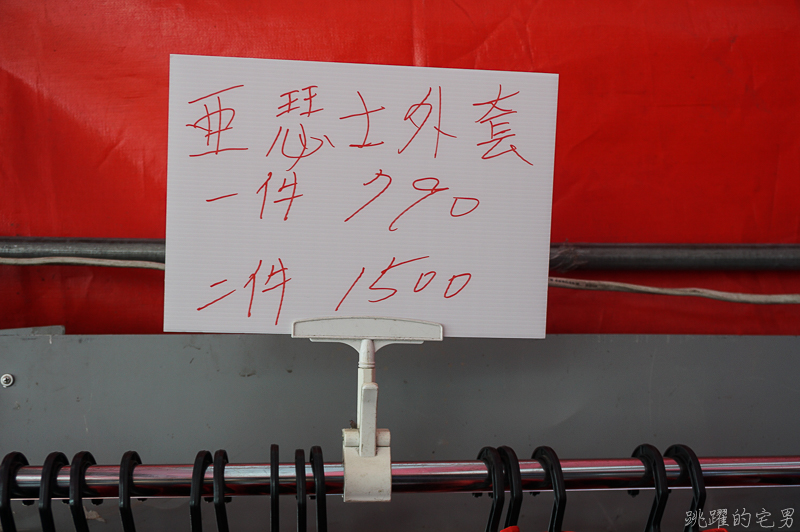 亜瑟士外套
一件 790
二件 1500
跳躍的宅男